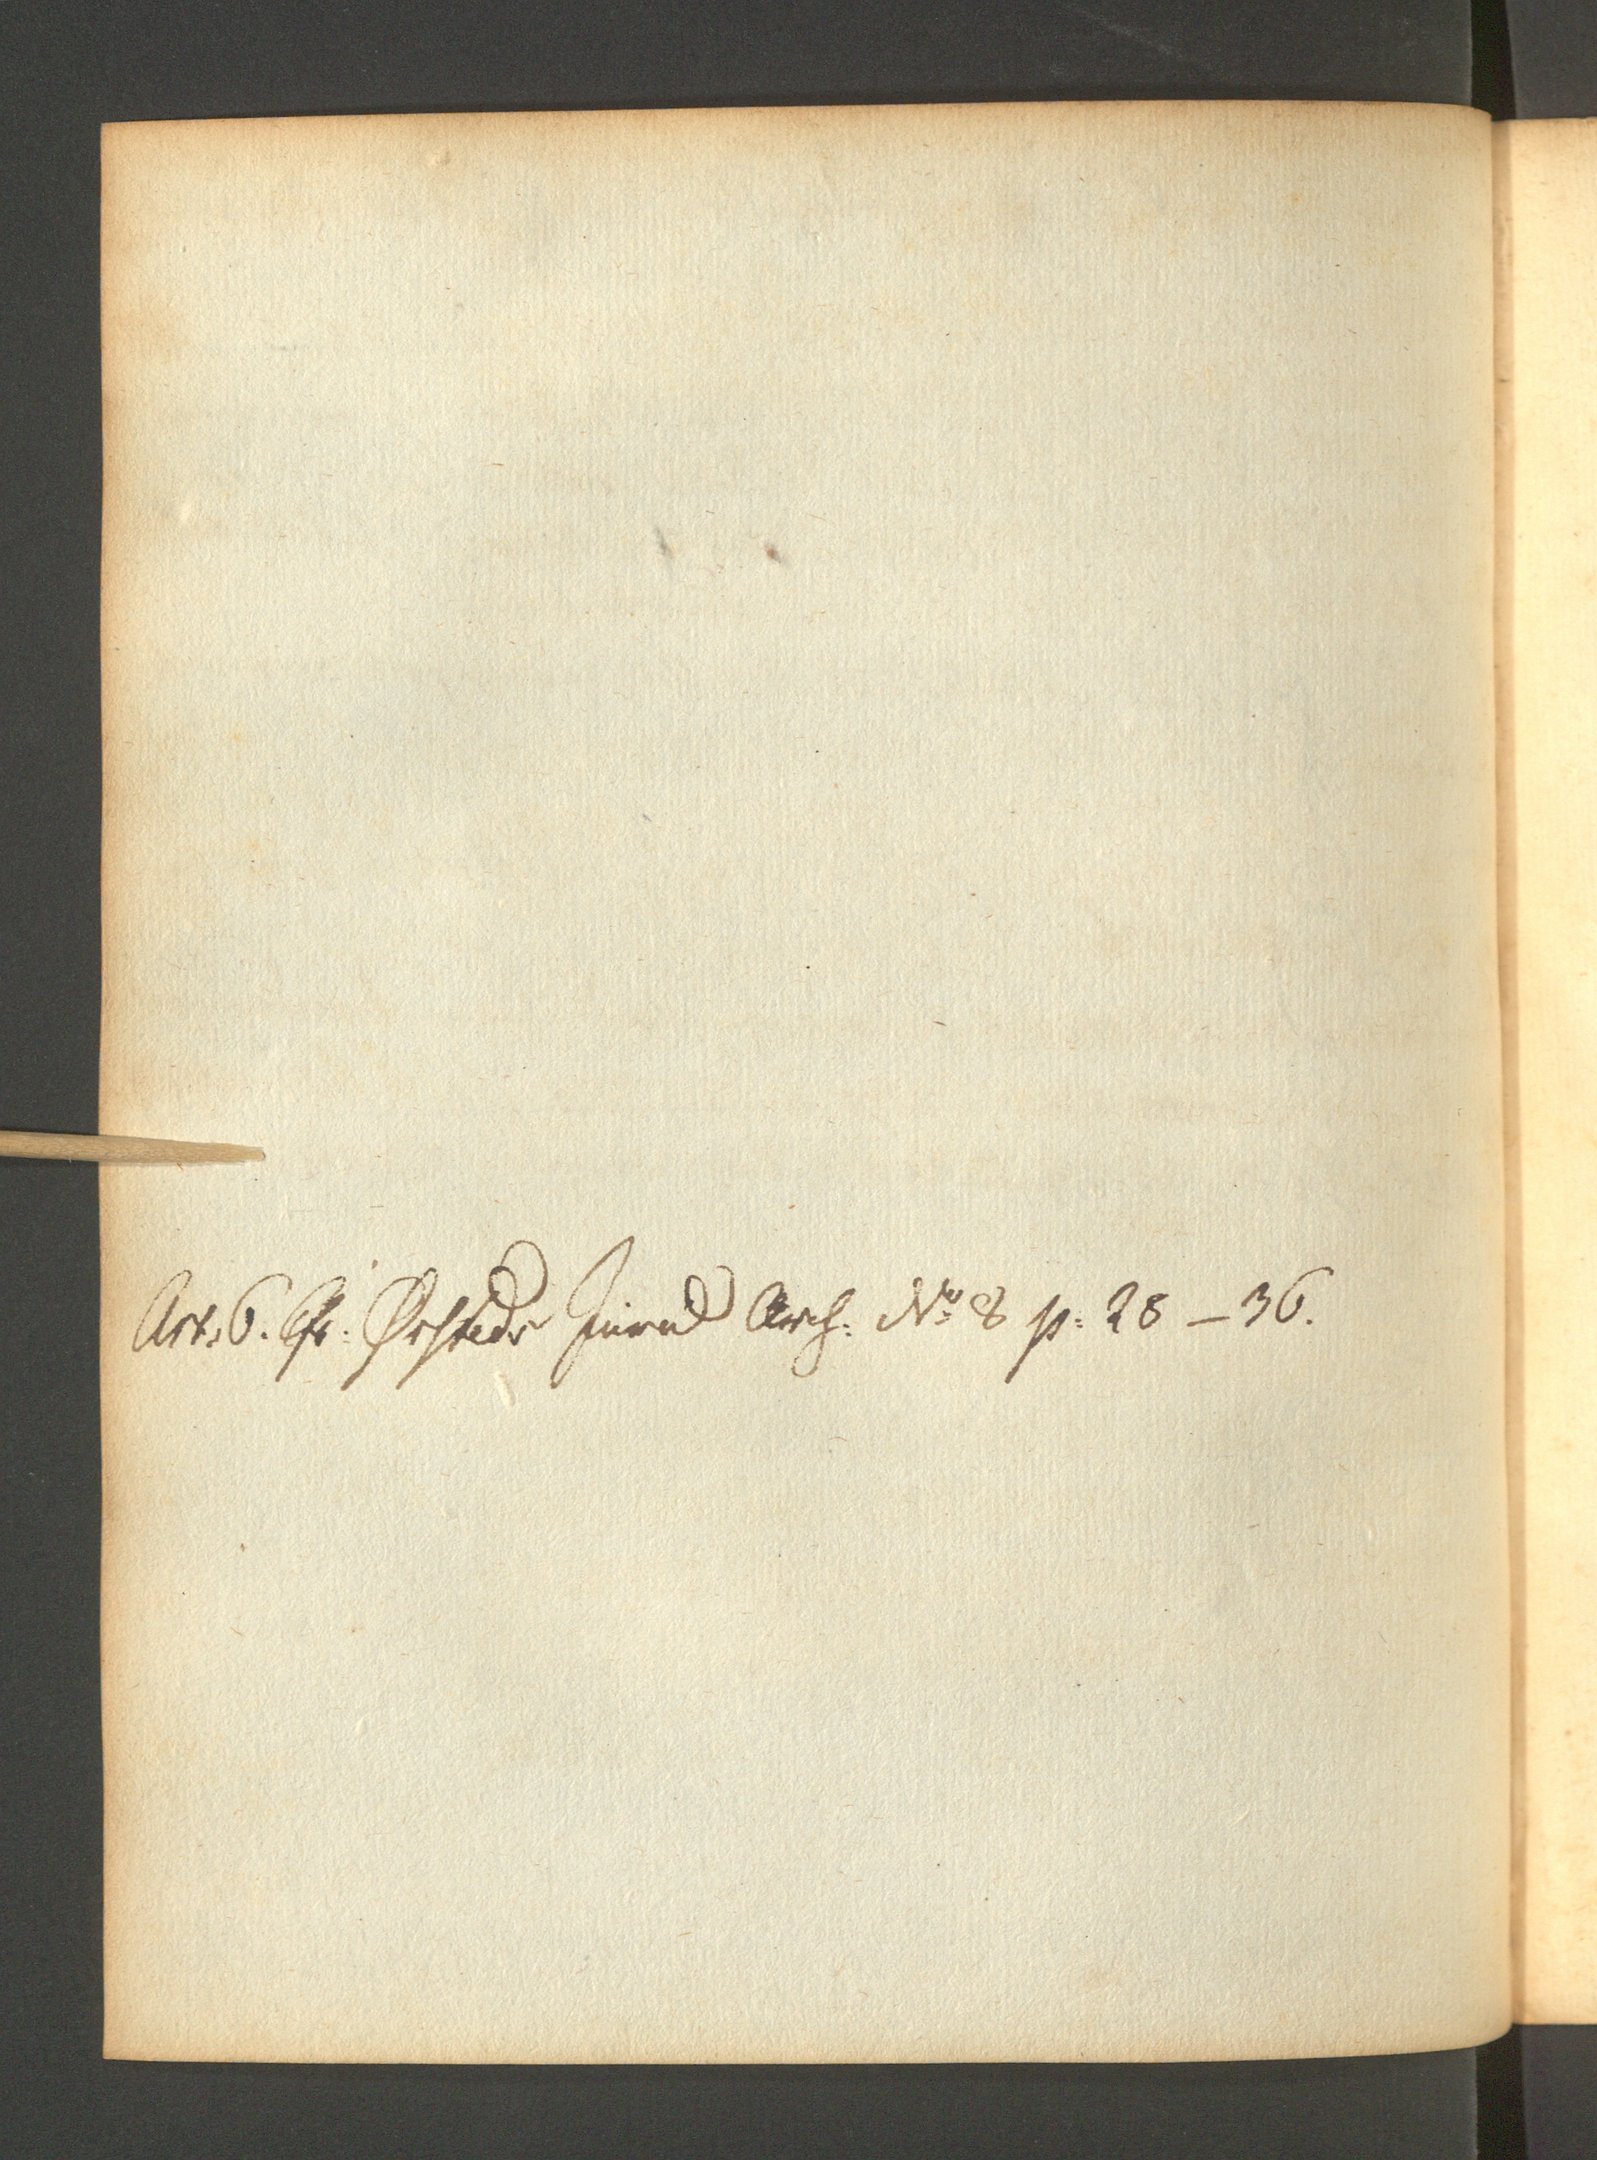 Art. 6. Cfr: Ørsteds Jurid Arch. No. 8 p. 28 – 36.